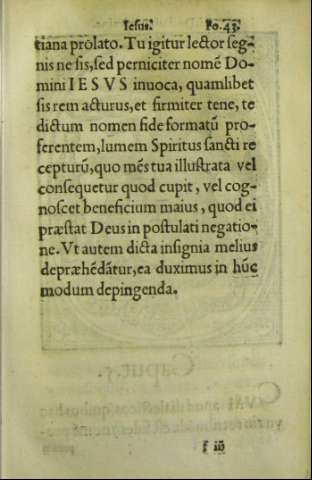 Iesus. Po. 43.
tiana prolato. Tu igitur lector seg-
nis ne sis, sed perniciter nomẽ Do-
mini I E S V S inuoca, quamlibet
sis rem acturus, et firmiter tene, te
dictum nomen fide formatũ pro-
ferentem, lumem Spiritus sancti re
cepturũ, quo mẽs tua illustrata vel
consequetur quod cupit, vel cog-
noscet beneficium maius, quod ei
præstat Deus in postulati negatio-
ne. Vt autem dicta insignia melius
depræhẽdãtur, ea duximus in hũc
modum depingenda.
f iij